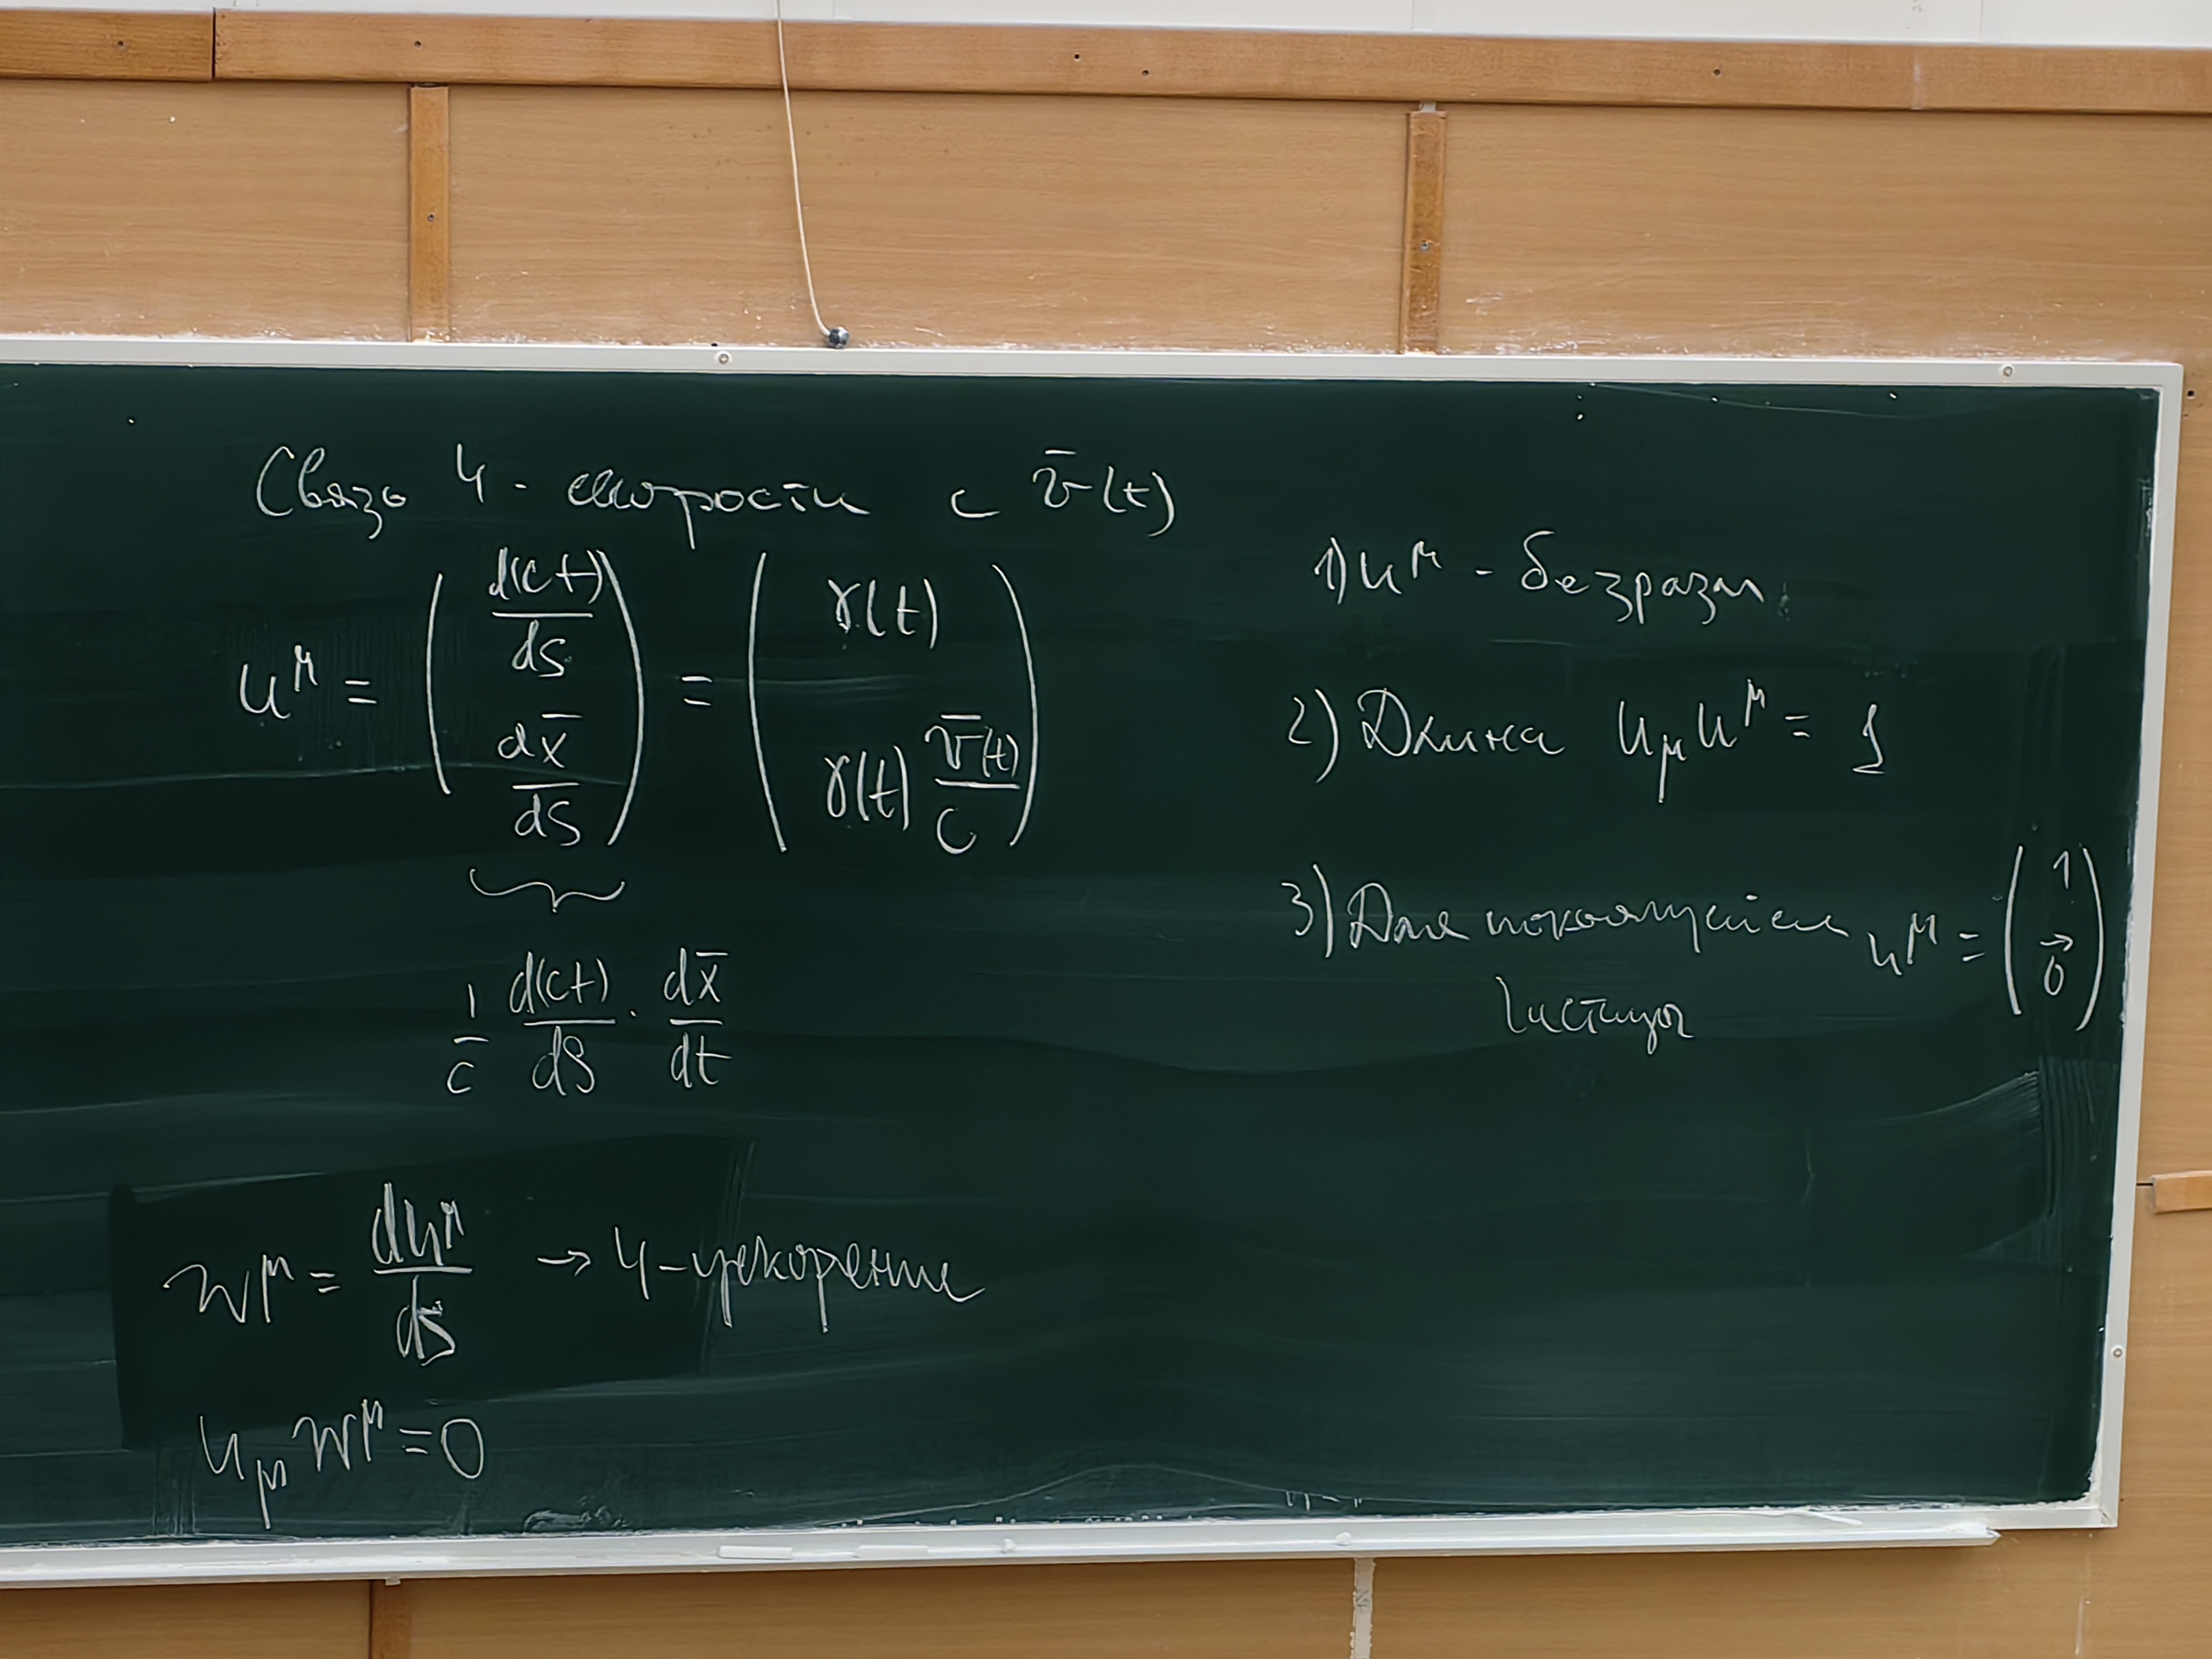 Связь 4-скорости с v̄(t)
u^μ = ( d(ct)/ds ; dx̄/ds ) = ( γ(t) ; γ(t) v̄(t)/c )
1/c d(ct)/ds · dx̄/dt
w^μ = du^μ/ds → 4-ускорение
u_μ w^μ = 0
1) u^μ - безразм.
2) Длина u_μ u^μ = 1
3) Для покоящейся u^μ = ( 1 ; 0⃗ )
частицы